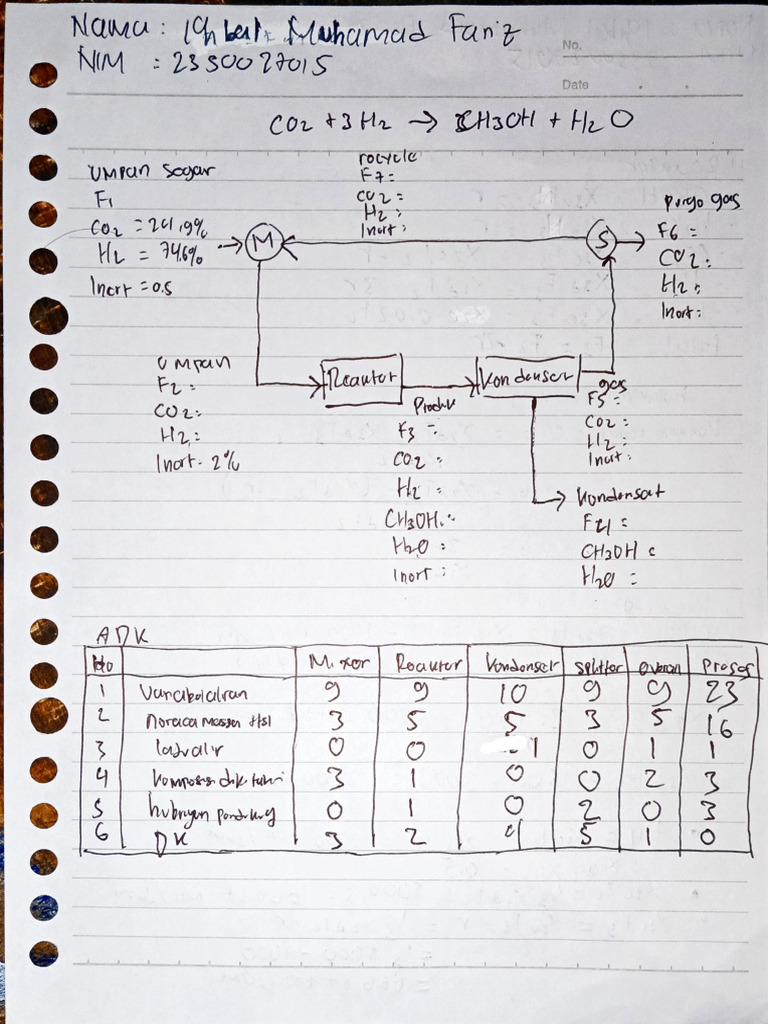 Nama : Ichbal Muhamad Fariz
No.
NIM : 2330027015
Date
CO2 + 3H2 → CH3OH + H2O
umpan segar
F1
CO2 = 24,9%
H2 = 74.6%
Inert = 0.5
recycle
F7 =
CO2 =
H2 :
Inert :
M
S
purge gas
F6 =
CO2 :
H2 :
Inert :
umpan
F2 :
CO2 :
H2 :
Inert. 2%
Reaktor
Kondenser
Produk
F3 =
CO2 =
H2 =
CH3OH :
H2O :
Inert :
gas
F5 =
CO2 :
H2 :
Inert :
Kondensat
F4 =
CH3OH =
H2O =
ADK
No Mixer Reaktor Kondenser Splitter Overall Proses
1 Variabel aliran 9 9 10 9 9 23
2 neraca massa HSI 3 5 5 3 5 16
3 laju alir 0 0 1 0 1 1
4 komposisi diketahui 3 1 0 0 2 3
5 hubungan pendukung 0 1 0 2 0 3
6 DK 3 2 4 5 1 0